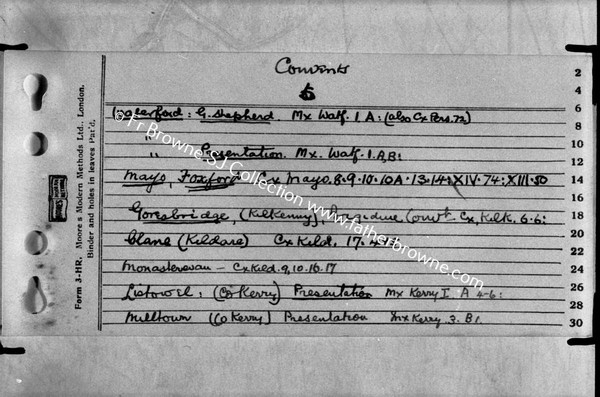 Convents
Waterford: G. Shepherd. Mx Watf. I A: (also Cx Pers. 72)
" Presentation. Mx. Watf. I. A, B:
Mayo, Foxford Cx Mayo. 8. 9. 10. 10A. 13. 14: XIV. 74: XIII. 50
Goresbridge, (Kilkenny), Cx, Kilk. 6.6:
Clane (Kildare) Cx Kild. 17.
Monasterevan – Cx Kild. 9, 10. 16. 17
Listowel: (Co Kerry) Presentation Mx Kerry I A 4-6:
Milltown (Co Kerry) Presentation Mx Kerry 3. B1.
2
4
6
8
10
12
14
16
18
20
22
24
26
28
30
Form 3-HR. Moore's Modern Methods Ltd., London.
Binder and holes in leaves Pat'd.
© Fr Browne SJ Collection www.fatherbrowne.com